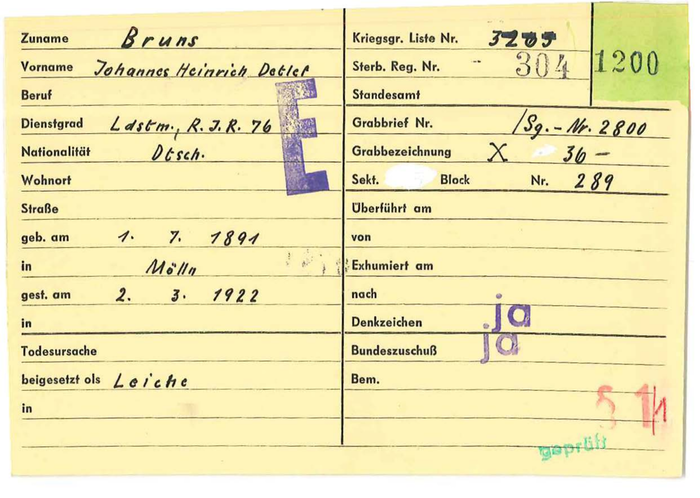 Zuname Bruns
Vorname Johannes Heinrich Detlef
Beruf
Dienstgrad Ldstm., R.J.R. 76
Nationalität Dtsch.
Wohnort
Straße
geb. am 1. 7. 1891
in Mölln
gest. am 2. 3. 1922
in
Todesursache
beigesetzt als Leiche
in
E
Kriegsgr. Liste Nr.
Sterb. Reg. Nr. 304
1200
Standesamt
Grabbrief Nr. /Sg.-Nr. 2800
Grabbezeichnung X 36-
Sekt. Block Nr. 289
Überführt am
von
Exhumiert am
nach
Denkzeichen ja
Bundeszuschuß ja
Bem.
geprüft